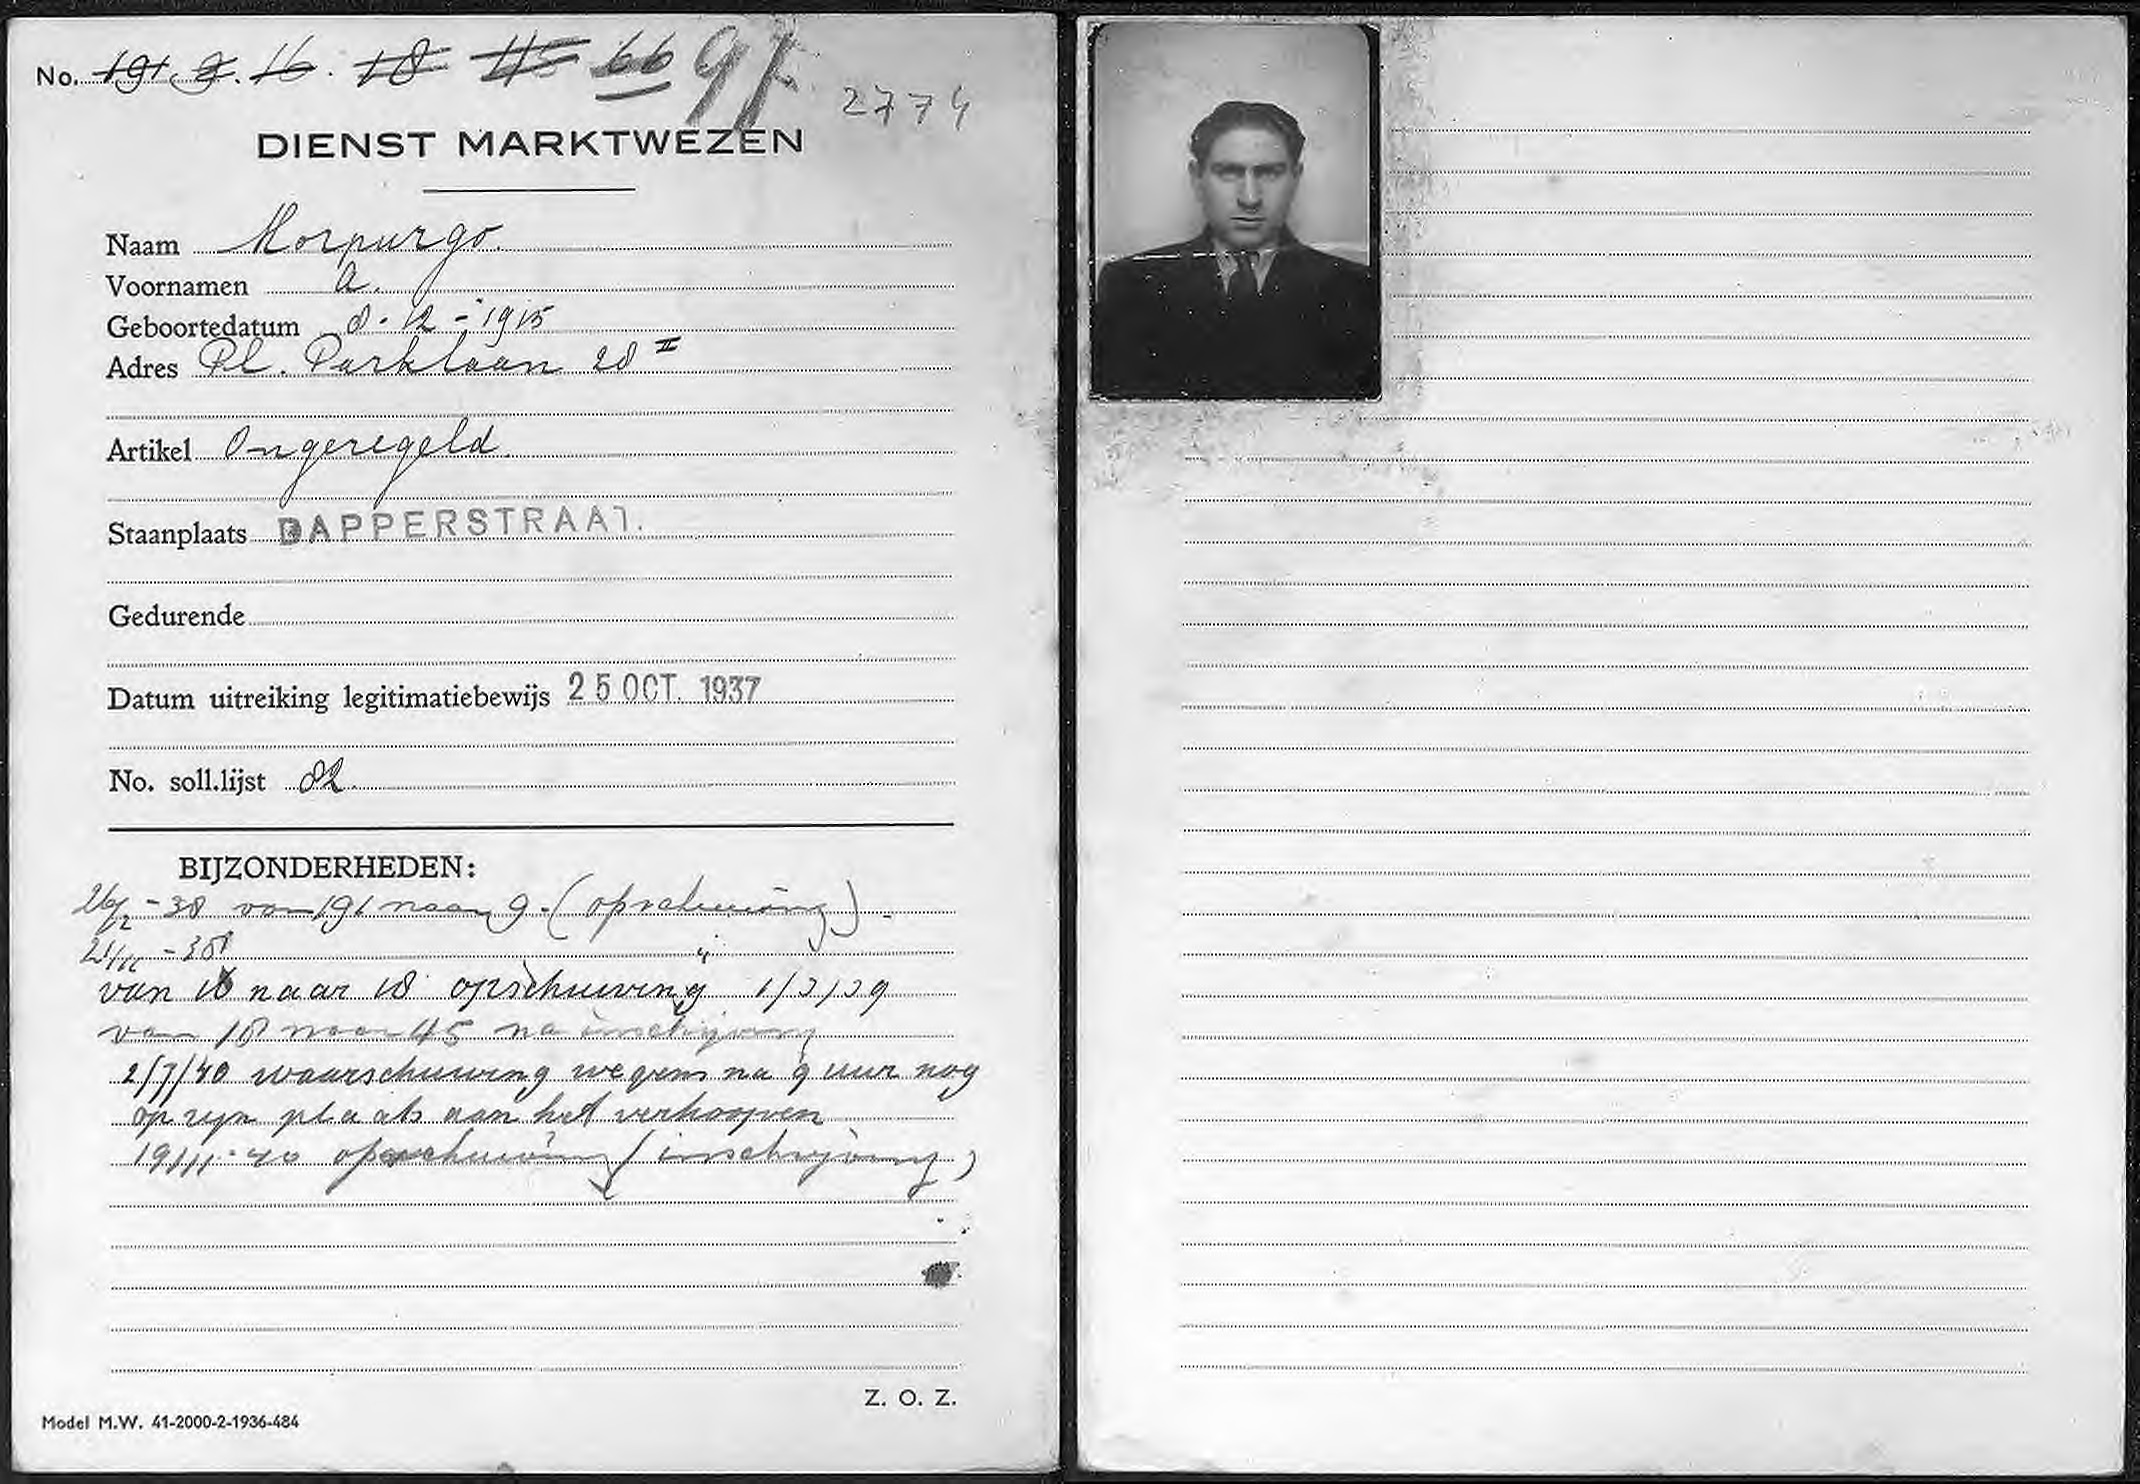 No. 191. 9. 16. 18 45 66 97
2774
DIENST MARKTWEZEN
Naam Morpurgo.
Voornamen A.
Geboortedatum 8-12-1915
Adres Pl. Parklaan 28 II
Artikel Ongeregeld.
Staanplaats DAPPERSTRAAT.
Gedurende
Datum uitreiking legitimatiebewijs 25 OCT. 1937
No. soll.lijst 82.
BIJZONDERHEDEN:
26/2 - 38 van 191 naar 9. (opschuiving).
21/11 - 38
van 16 naar 18 opschuiving 1/3/39
van 18 naar 45 na inschrijving
2/7/40 waarschuwing wegens na 9 uur nog
op zijn plaats aan het verkoopen
19/11-40 opschuiving (inschrijving)
Z. O. Z.
Model M.W. 41-2000-2-1936-484